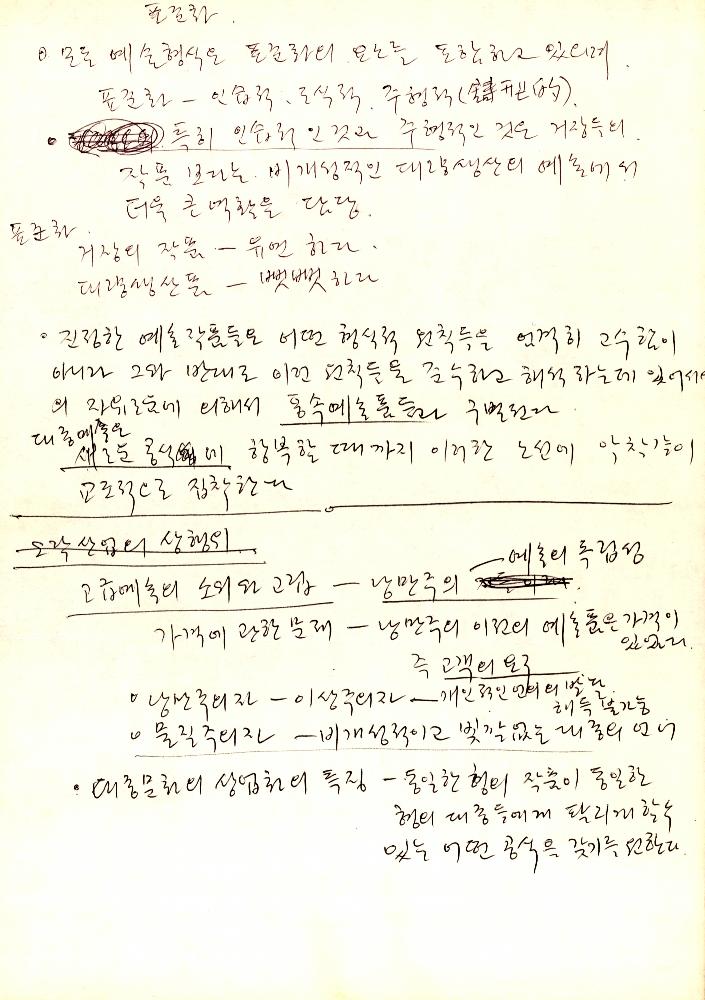 표준화.
모든 예술형식은 표준화의 요소를 포함하고 있으며.
표준화 – 인습적. 도식적. 주형적(鑄型的).
특히 인습적인것과 주형적인 것은 거장들의
작품 보다는 비개성적인 대량생산의 예술에서
더욱 큰 역활을 담당.
표준화.
거장의 작품 – 유연 하다.
대량생산품 – 뻣뻣하다
진정한 예술작품들은 어떤 형식적 원칙들을 엄격히 고수함이
아니라 그와 반대로 이런 원칙들을 준수하고 해석하는데 있어서
의 자유로움에 의해서 통속예술품들과 구별된다.
대중예술은
새로운 공식에 항복할 때까지 이러한 노선에 악착같이
교조적으로 집착한다
오락산업의 상행위
예술의 독립성
고급예술의 소외와 고립 – 낭만주의
가격에 관한 문제 – 낭만주의 이전의 예술품은 가격이
있었다.
즉 고객의 요구
낭만주의자 – 이상주의자 – 개인적인 언어의 발달
해득 불가능
물질주의자 – 비개성적이고 빛깔없는 대중의 언어
대중문화의 상업화의 특징 – 동일한 형의 작품이 동일한
형의 대중들에게 팔리게 할 수
있는 어떤 공식을 갖기를 원한다.